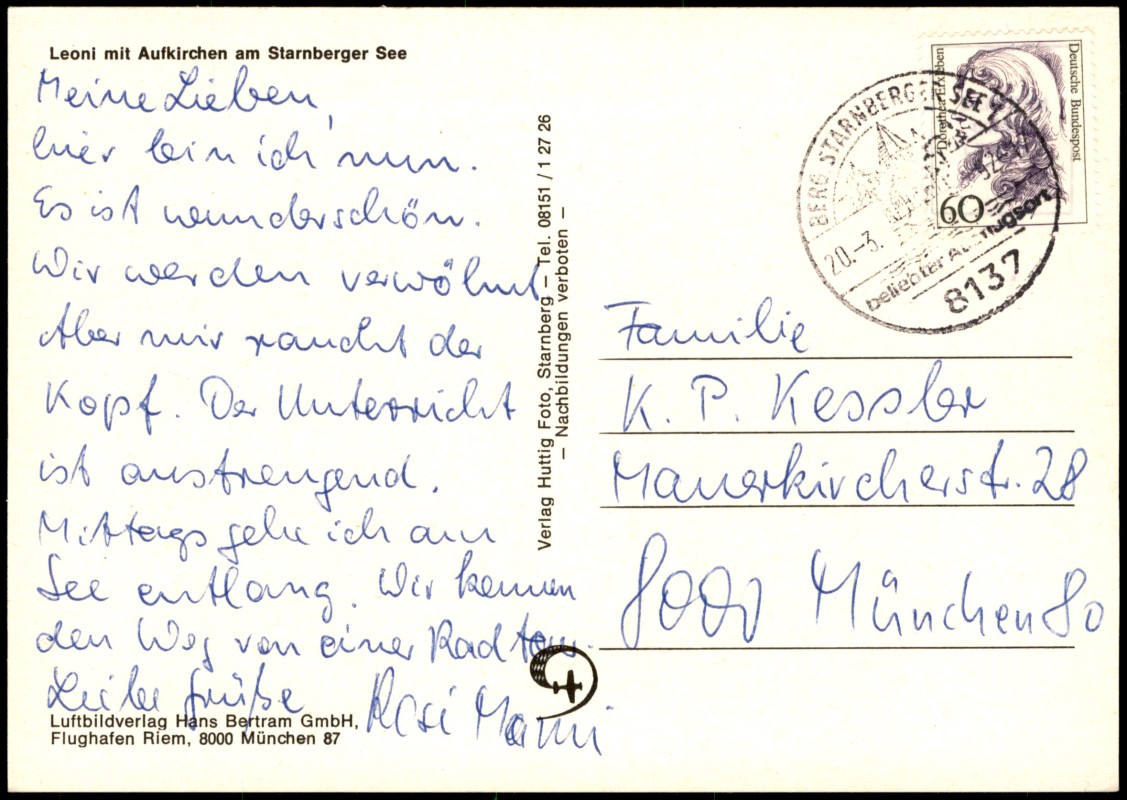 Leoni mit Aufkirchen am Starnberger See
Meine Lieben,
hier bin ich nun.
Es ist wunderschön.
Wir werden verwöhnt
Aber mir raucht der
Kopf. Der Unterricht
ist anstrengend.
Mittags gehe ich am
See entlang. Wir kennen
den Weg von einer Radtour.
Liebe Grüße Rosi Mami
Luftbildverlag Hans Bertram GmbH,
Flughafen Riem, 8000 München 87
Verlag Huttig Foto, Starnberg – Tel. 08151 / 1 27 26
– Nachbildungen verboten –
Deutsche Bundespost
Dorothea Erxleben
60
BERG STARNBERGER SEE
20.-3.
beliebter Ausflugsort
8137
Familie
K. P. Kessler
Mauerkircherstr. 28
8000 München 80